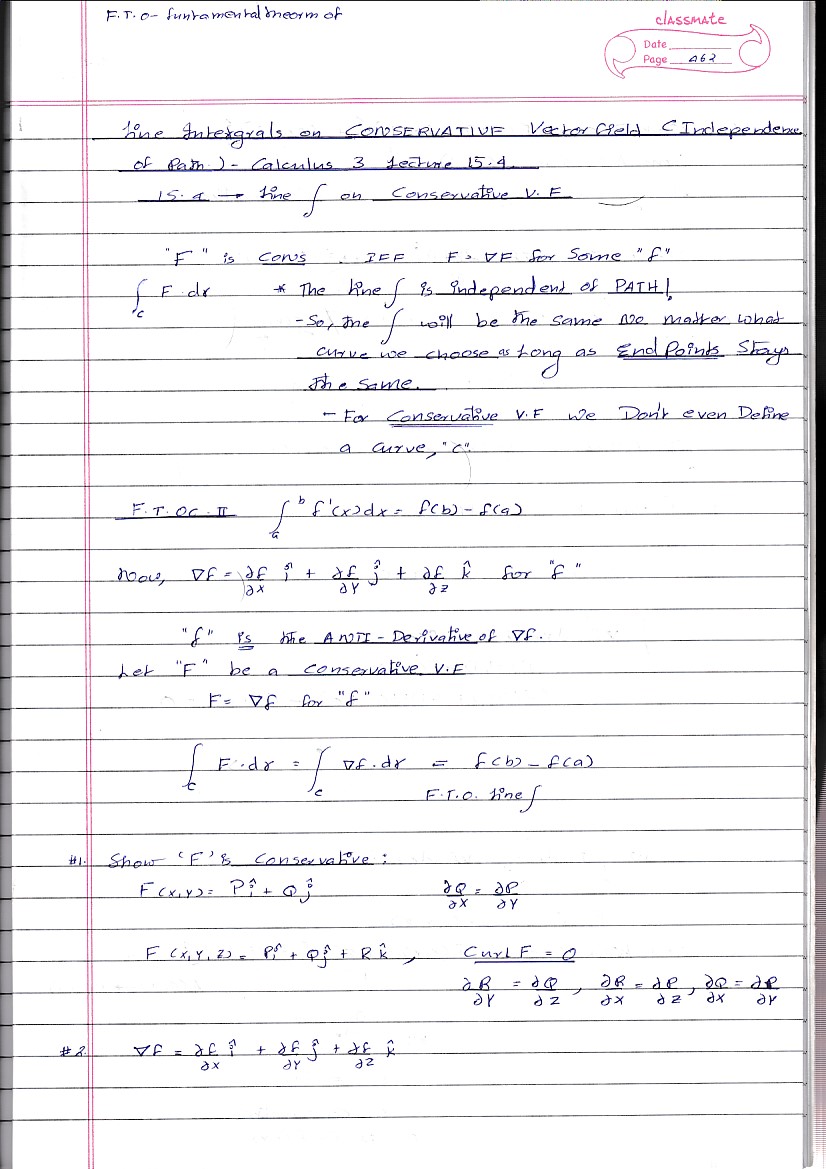 F.T.O- funramental theorm of
classmate
Date
Page 462
Line Intergrals on CONSERVATIVE Vector field (Independence
of Path) - Calculus 3 Lecture 15.4
15.4 → Line ∫ on Conservative V.F
"F" is cons . IFF F = ∇F for Some "f"
∫_C F.dr * The line ∫ is independent of PATH!
- So, the ∫ will be the same No matter what
curve we choose as Long as End Points Stays
the same.
- For Conservative V.F we Don't even Define
a curve, "C".
F.T.OC.II ∫_a^b f'(x)dx = f(b) - f(a)
Now, ∇f = ∂f/∂x î + ∂f/∂y ĵ + ∂f/∂z k̂ for "f"
"f" is the ANTI-Derivative of ∇f.
Let "F" be a conservative V.F
F = ∇f for "f"
∫_C F.dr = ∫_C ∇f.dr = f(b) - f(a)
F.T.O. Line ∫
#1. Show 'F' is Conservative :
F(x,y) = Pî + Qĵ ∂Q/∂x = ∂P/∂y
F(x,y,z) = Pî + Qĵ + Rk̂, Curl F = 0
∂R/∂y = ∂Q/∂z, ∂R/∂x = ∂P/∂z, ∂Q/∂x = ∂P/∂y
#2. ∇f = ∂f/∂x î + ∂f/∂y ĵ + ∂f/∂z k̂